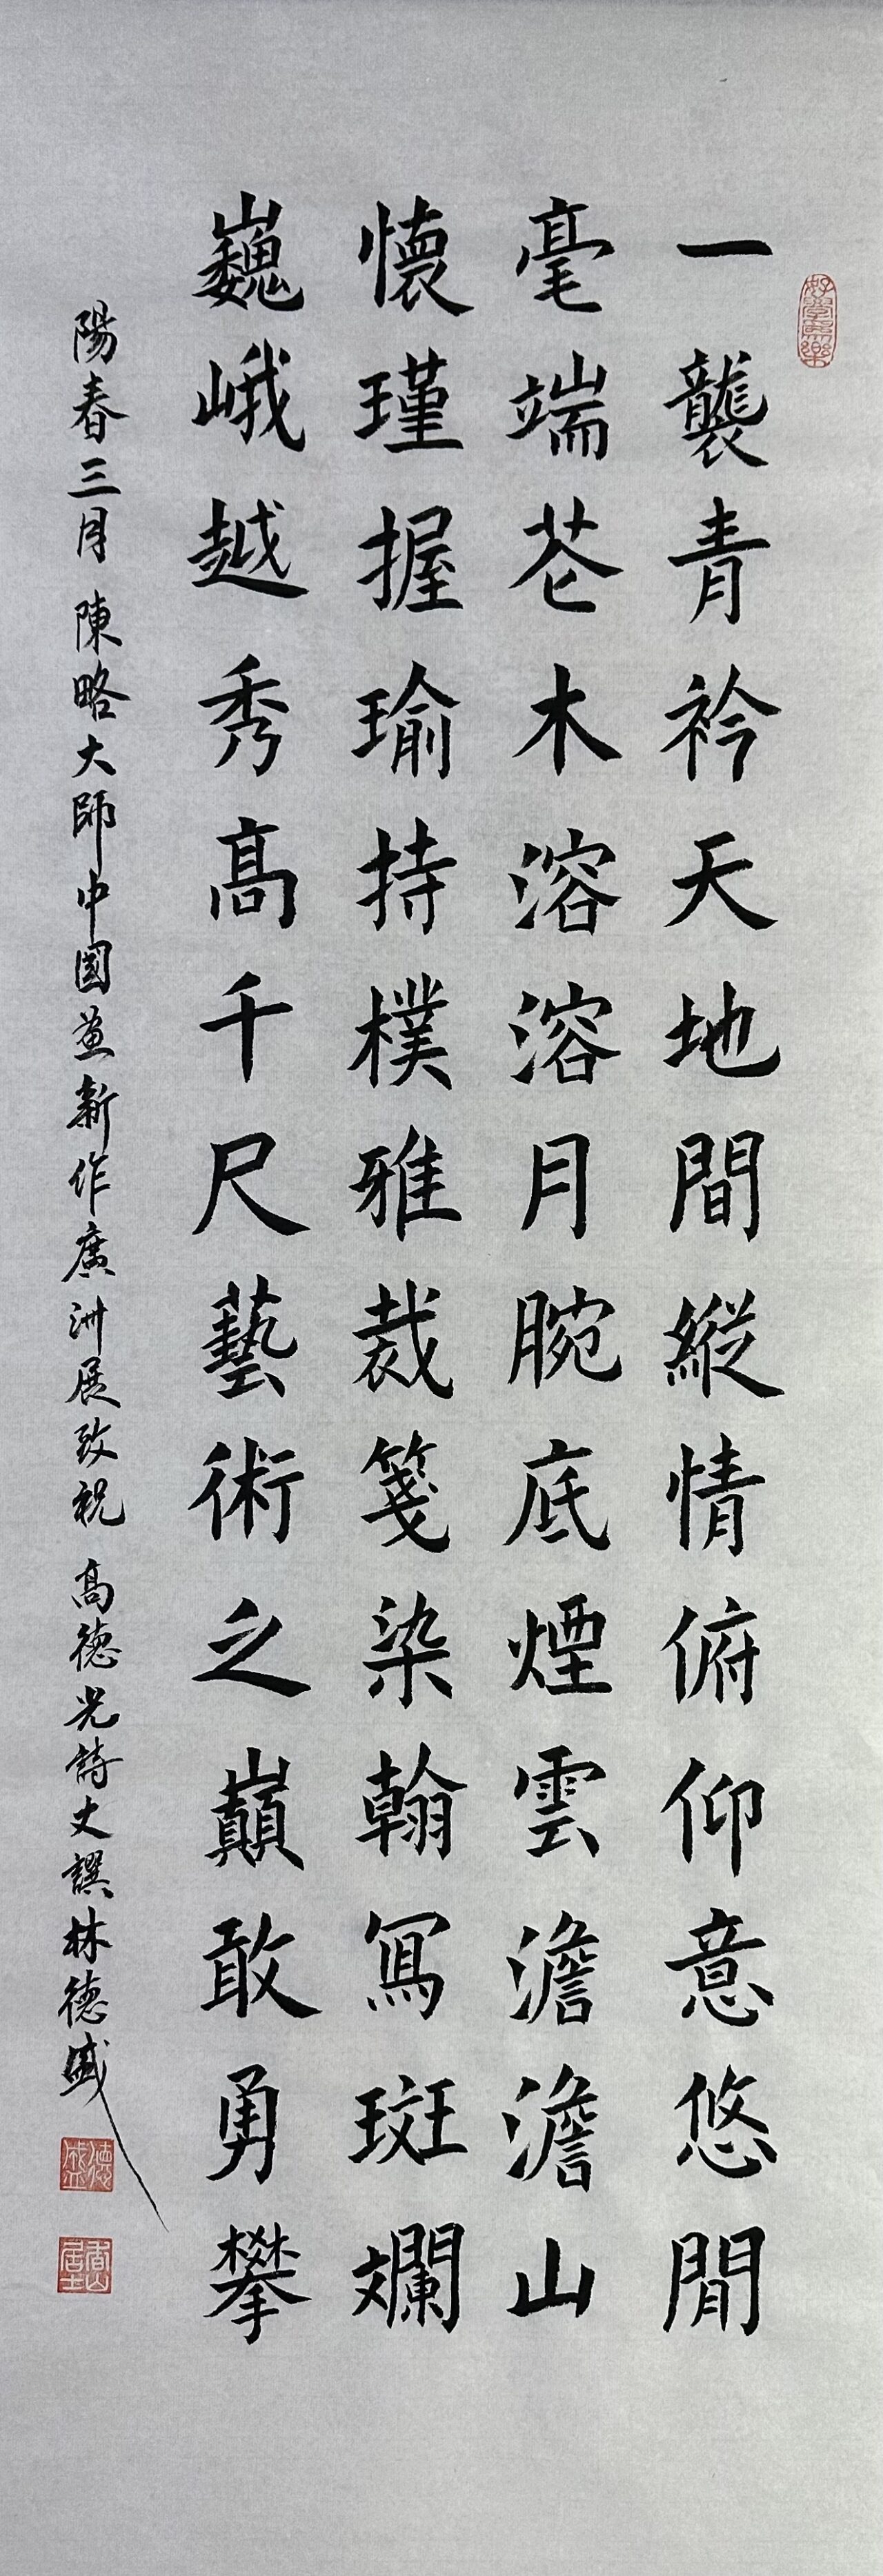 一襲青衿天地間縱情俯仰意悠閒
毫端花木溶溶月腕底煙雲澹澹山
懷瑾握瑜持樸雅裁箋染翰寫斑斕
巍峨越秀高千尺藝術之巔敢勇攀
陽春三月陳略大師中國畫新作廣洲展致祝高德光詩文譔林德盛
好學為樂
德盛
香山居士